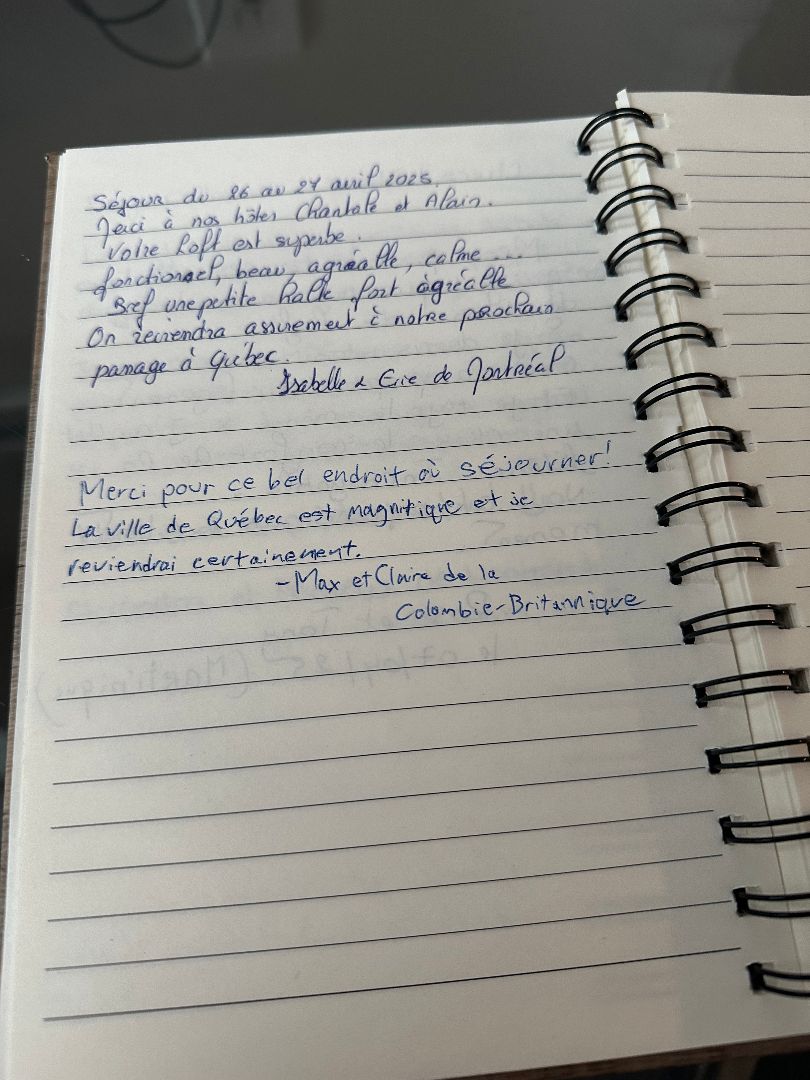 Séjour du 26 au 27 avril 2025
Merci à nos hôtes Chantale et Alain.
Votre loft est superbe.
fonctionnel, beau, agréable, calme ...
Bref une petite halte fort agréable
On reviendra assurément à notre prochain
passage à Québec.
Isabelle & Eric de Montréal
Merci pour ce bel endroit où séjourner!
La ville de Québec est magnifique et je
reviendrai certainement.
-Max et Claire de la
Colombie-Britannique